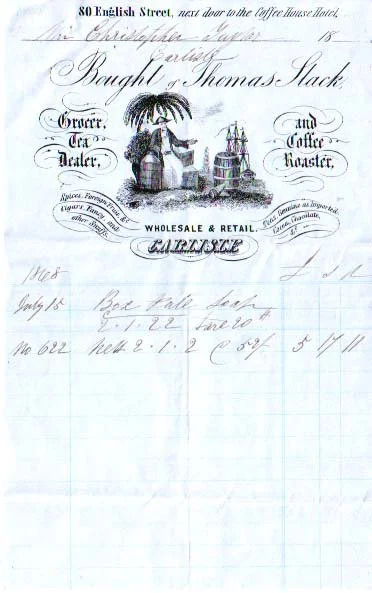 80 English Street, next door to the Coffee House Hotel.
Mr Christopher Taylor 18
Carlisle
Bought of Thomas Slack,
Grocer,
Tea
Dealer,
and
Coffee
Roaster,
Spices, Foreign Fruits, &c.
Cigars, Fancy and
other Snuffs.
Teas, Genuine as Imported.
Cocoa, Chocolate,
&c.
WHOLESALE & RETAIL.
CARLISLE
1868 £ s d
July 15 Box Pale Soap
2.1.22 Tare 20 lb
No 622 Nett 2.1.2 @ 52/ 5 17 11